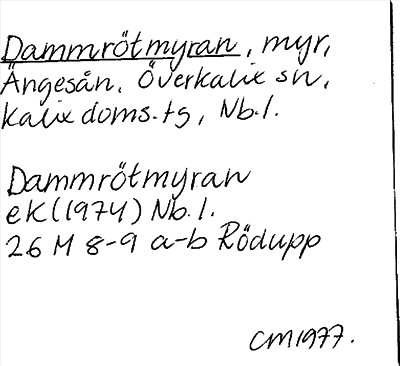 Dammrötmyran, myr,
Ängesån, Överkalix sn,
Kalix doms.tg, Nb.l.
Dammrötmyran
ek (1974) Nb.l.
26 M 8-9 a-b Rödupp
CM1977.